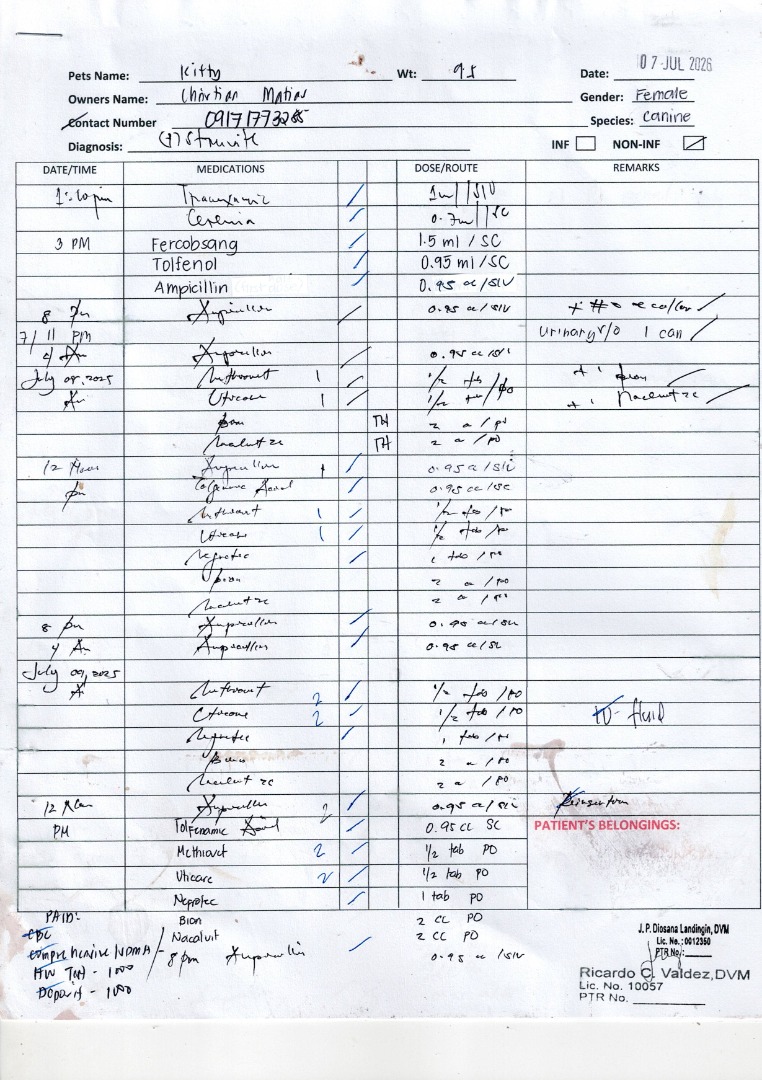 Pets Name: Kitty Wt: 9.5 Date: 07 JUL 2026
Owners Name: Christian Matias Gender: Female
Contact Number 09171773285 Species: Canine
Diagnosis: INF NON-INF
DATE/TIME MEDICATIONS DOSE/ROUTE REMARKS
Tranexamic 1ml / SIV
Cerenia 0.7ml / SC
3 PM Fercobsang 1.5 ml / SC
Tolfenol 0.95 ml / SC
Ampicillin 0.95 cc / SIV
8 pm Ampicillin 0.95 cc / SIV + e collar
7/ 11 PM Urinary r/o 1 can
4 Am Ampicillin 0.95 cc / SIV
July 08, 2025 Methiovet 1 1/2 tab
Am Uticare 1 1/2 tab / PO + 1 Nacalvit zc
Bion TH 2 cc / PO
Nacalvit zc TH 2 cc / PO
12 Ampicillin 1 0.95 cc / SIV
pm Tolfenamic Acid 0.95 cc / SC
Methiovet 1 1/2 tab / PO
Uticare 1 1/2 tab / PO
Neprotec 1 tab / PO
Bion 2 cc / PO
Nacalvit zc 2 cc / PO
8 pm Ampicillin 0.95 cc / SIV
4 Am Ampicillin 0.95 cc / SIV
July 09, 2025
Methiovet 2 1/2 tab / PO
Uticare 2 1/2 tab / PO IV fluid
Neprotec 1 tab / PO
Bion 2 cc / PO
Nacalvit zc 2 cc / PO
12 Ampicillin 2 0.95 cc / SIV Reinsertion
PM Tolfenamic Acid 0.95 cc SC PATIENT'S BELONGINGS:
Methiovet 2 1/2 tab PO
Uticare 2 1/2 tab PO
Neprotec 1 tab PO
PAID: Bion 2 cc PO
CBC Nacalvit 2 cc PO
Comprehensive 8pm Ampicillin 0.95 cc / SIV
- 1000
Deposit - 1000
J.P. Diosana Landingin, DVM
Lic. No.: 0012350
PTR No.:
Ricardo C. Valdez, DVM
Lic. No. 10057
PTR No.